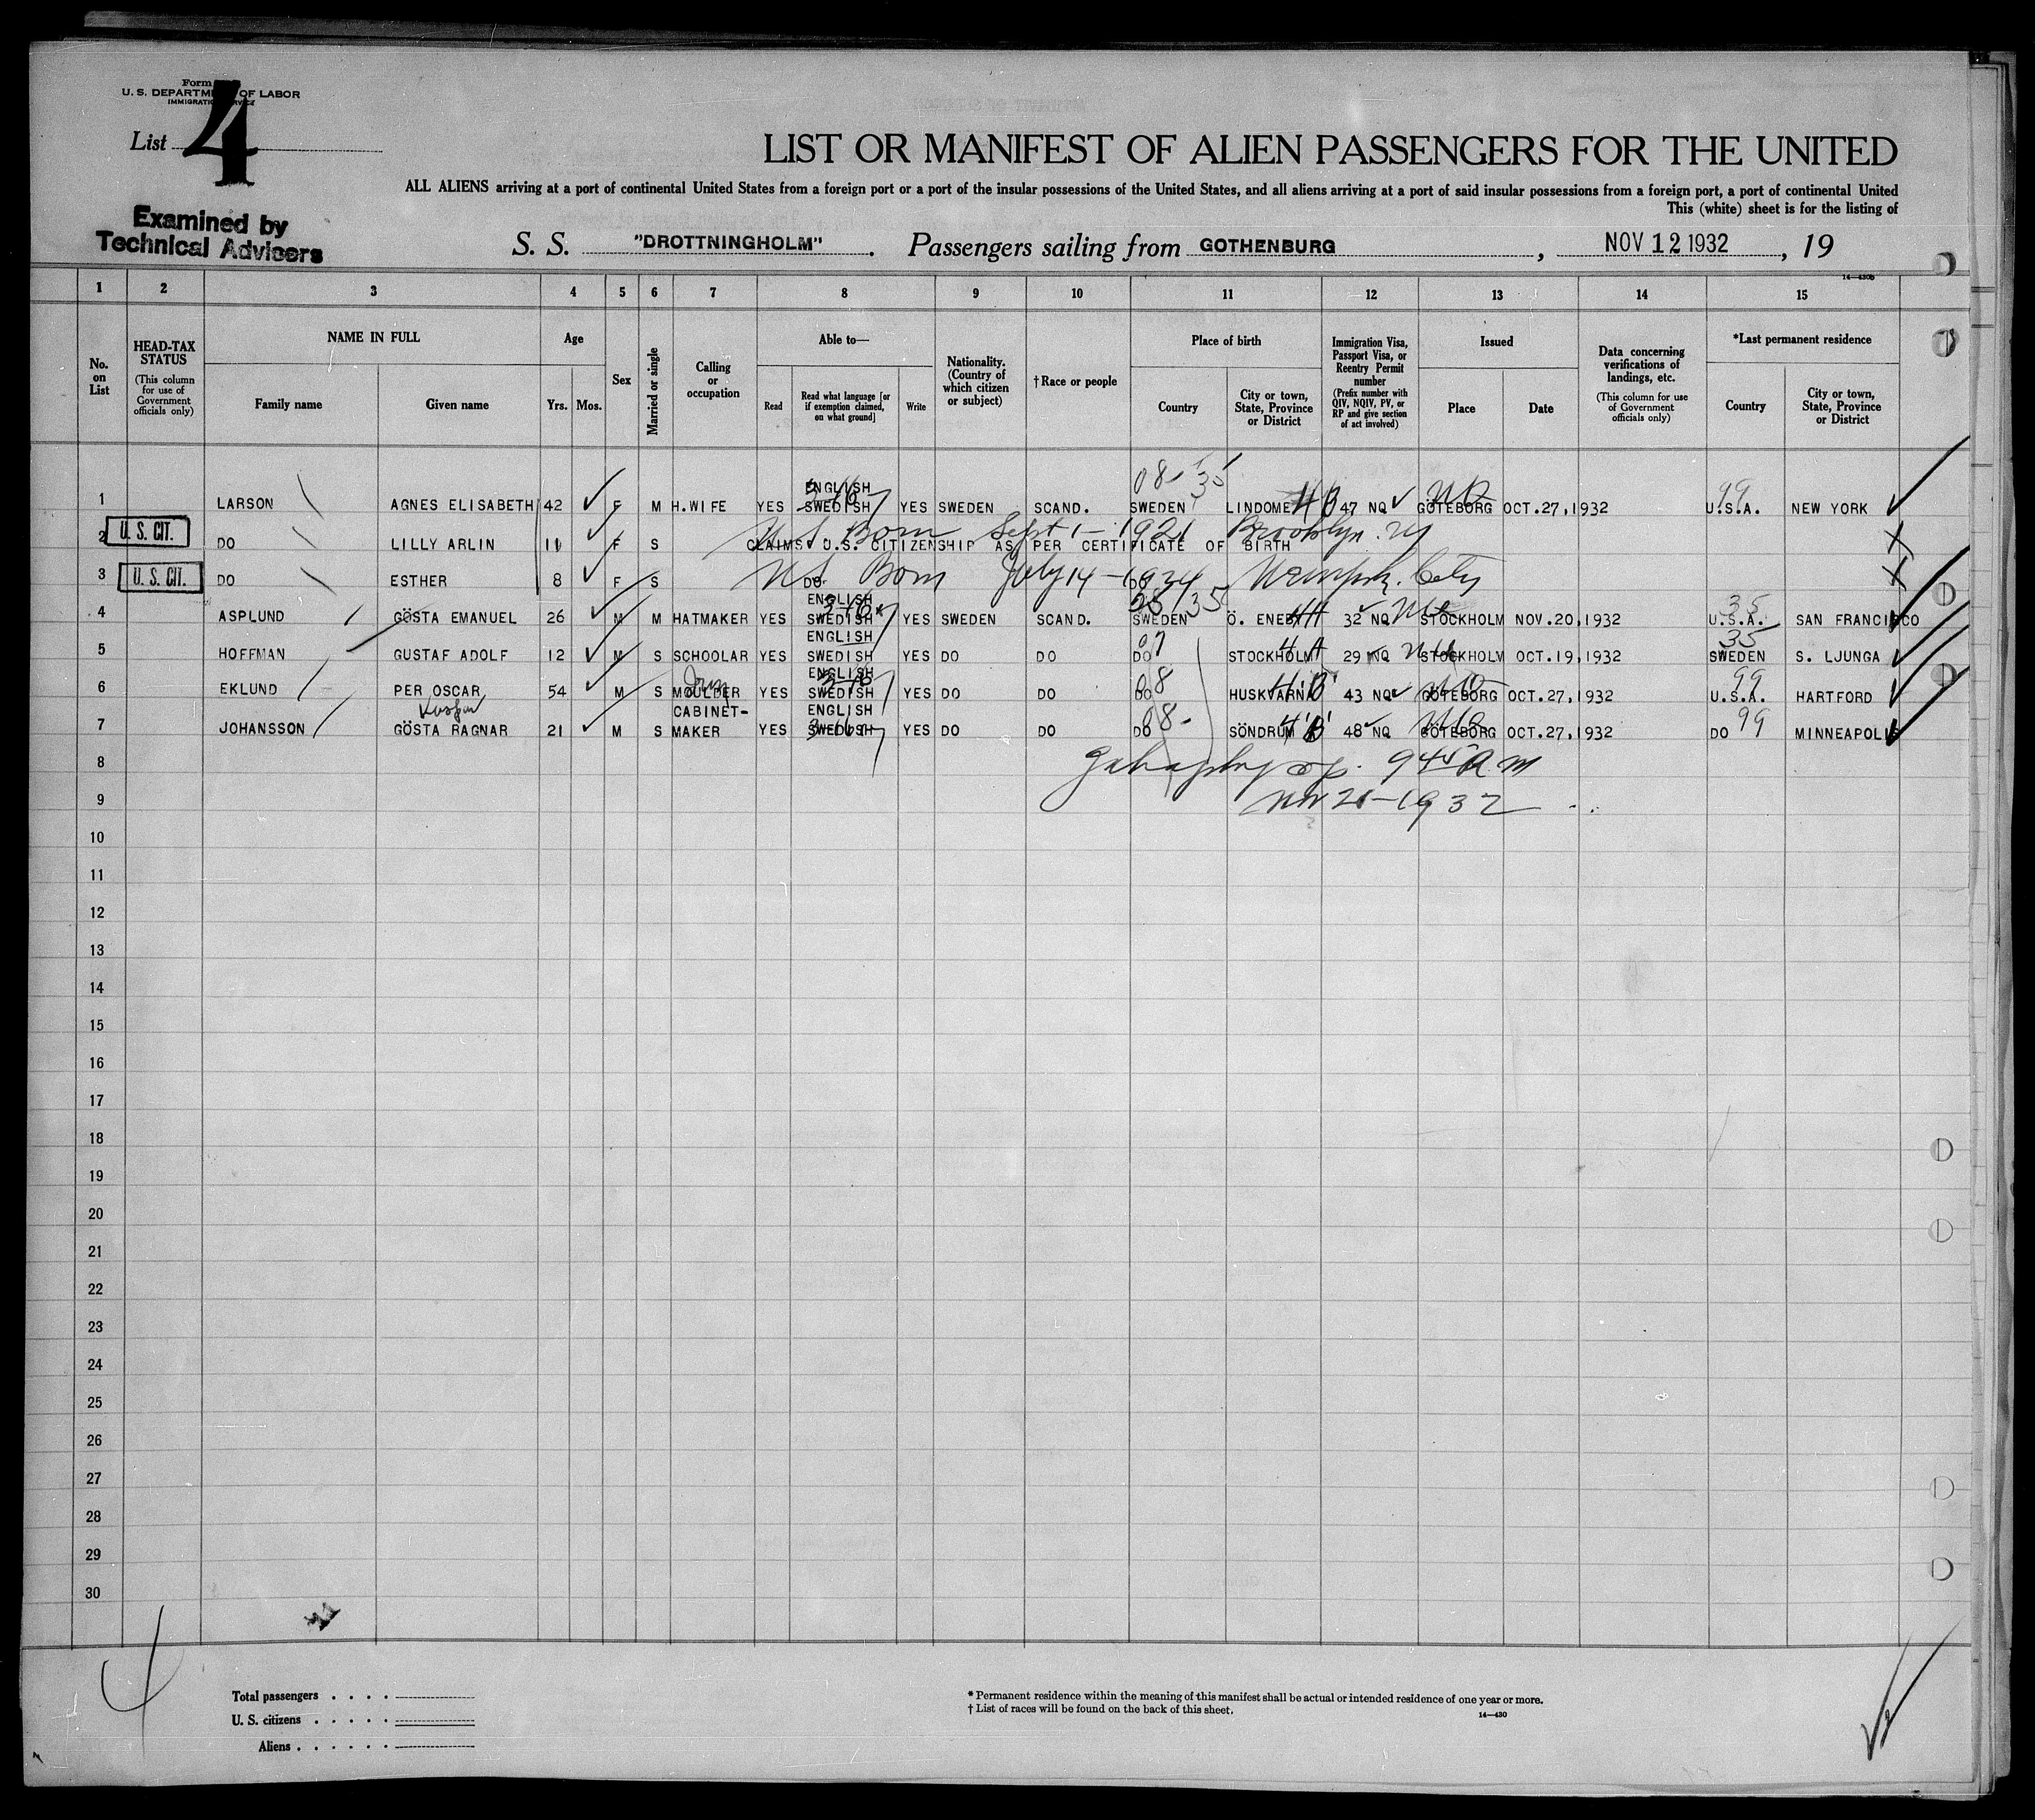 Form
U. S. DEPARTMENT OF LABOR
IMMIGRATION SERVICE
List 4
LIST OR MANIFEST OF ALIEN PASSENGERS FOR THE UNITED
ALL ALIENS arriving at a port of continental United States from a foreign port or a port of the insular possessions of the United States, and all aliens arriving at a port of said insular possessions from a foreign port, a port of continental United
This (white) sheet is for the listing of
Examined by
Technical Advisers
S. S. "DROTTNINGHOLM". Passengers sailing from GOTHENBURG, NOV 12 1932, 19
14—430B
1 2 3 4 5 6 7 8 9 10 11 12 13 14 15
No. on List
HEAD-TAX STATUS (This column for use of Government officials only)
NAME IN FULL
Family name Given name
Age
Yrs. Mos.
Sex
Married or single
Calling or occupation
Able to—
Read Read what language [or if exemption claimed, on what ground] Write
Nationality. (Country of which citizen or subject)
†Race or people
Place of birth
Country City or town, State, Province or District
Immigration Visa, Passport Visa, or Reentry Permit number (Prefix number with QIV, NQIV, PV, or RP and give section of act involved)
Issued
Place Date
Data concerning verifications of landings, etc. (This column for use of Government officials only)
*Last permanent residence
Country City or town, State, Province or District
08- 35
1 LARSON AGNES ELISABETH 42 F M H.WIFE YES ENGLISH SWEDISH YES SWEDEN SCAND. SWEDEN LINDOME 47 NQ GÖTEBORG OCT.27,1932 99 U.S.A. NEW YORK
U.S. Born Sept 1-1921 Brooklyn. NY
2 U. S. CIT. DO LILLY ARLIN 11 F S CLAIMS U.S. CITIZENSHIP AS PER CERTIFICATE OF BIRTH
3 U. S. CIT. DO ESTHER 8 F S DO DO
US Born July 14-1924 City
4 ASPLUND GÖSTA EMANUEL 26 M M HATMAKER YES ENGLISH SWEDISH YES SWEDEN SCAND. SWEDEN Ö. ENEBY 32 NQ STOCKHOLM NOV.20,1932 35 U.S.A. SAN FRANCISCO
5 HOFFMAN GUSTAF ADOLF 12 M S SCHOOLAR YES ENGLISH SWEDISH YES DO DO DO STOCKHOLM 29 NQ STOCKHOLM OCT.19,1932 35 SWEDEN S. LJUNGA
6 EKLUND PER OSCAR 54 M S Iron MOULDER YES ENGLISH SWEDISH YES DO DO DO 08 HUSKVARNA 43 NQ GÖTEBORG OCT.27,1932 99 U.S.A. HARTFORD
7 JOHANSSON GÖSTA RAGNAR 21 M S CABINET-MAKER YES ENGLISH SWEDISH YES DO DO DO 08- SÖNDRUM 48 NQ GÖTEBORG OCT.27,1932 DO 99 MINNEAPOLIS
8 9 45 A.M
9 Nov 21-1932
10
11
12
13
14
15
16
17
18
19
20
21
22
23
24
25
26
27
28
29
30
Total passengers . . . .
U. S. citizens . . . . .
Aliens . . . . . .
* Permanent residence within the meaning of this manifest shall be actual or intended residence of one year or more.
† List of races will be found on the back of this sheet.
14—430